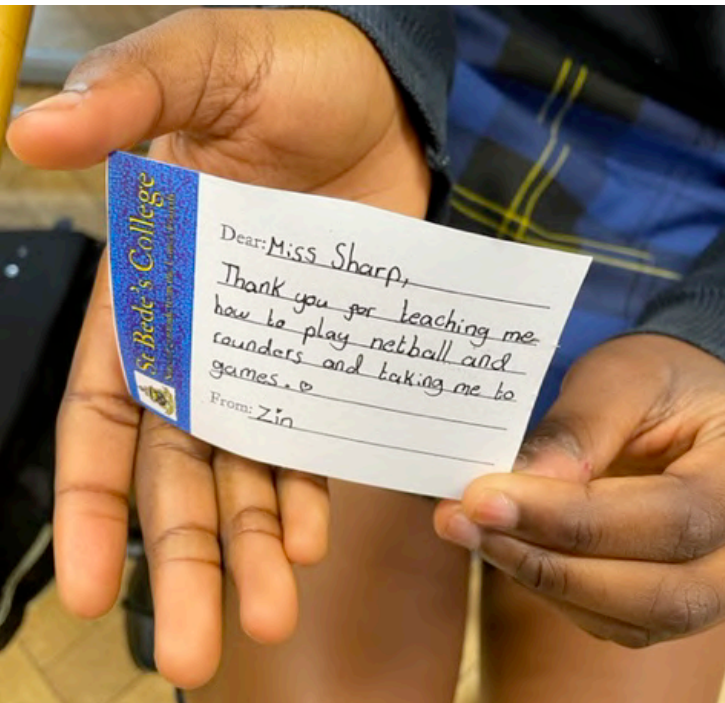 St Bede's College
Dear: Miss Sharp,
Thank you for teaching me
how to play netball and
rounders and taking me to
games. ♡
From: Zin